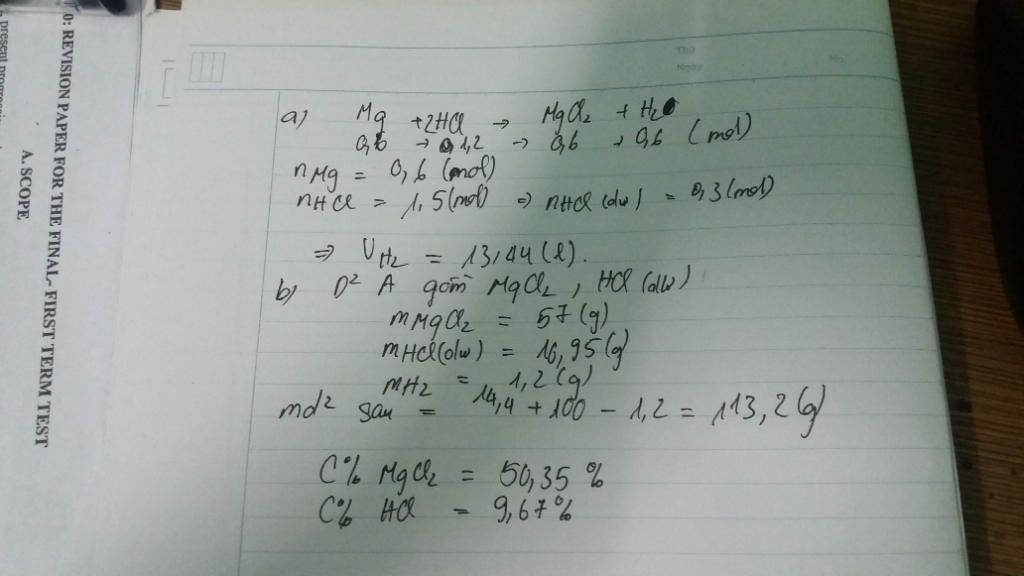 0: REVISION PAPER FOR THE FINAL- FIRST TERM TEST
A. SCOPE
present progressi
Thứ
Ngày
No
a) Mg + 2HCl → MgCl2 + H2
0,6 → 1,2 → 0,6 → 0,6 (mol)
nMg = 0,6 (mol)
nHCl = 1,5 (mol) => nHCl (dư) = 0,3 (mol)
=> VH2 = 13,44 (l).
b) D² A gồm MgCl2, HCl (dư)
mMgCl2 = 57 (g)
mHCl (dư) = 10,95 (g)
mH2 = 1,2 (g)
md² sau = 14,4 + 100 - 1,2 = 113,2 (g)
C% MgCl2 = 50,35 %
C% HCl = 9,67 %